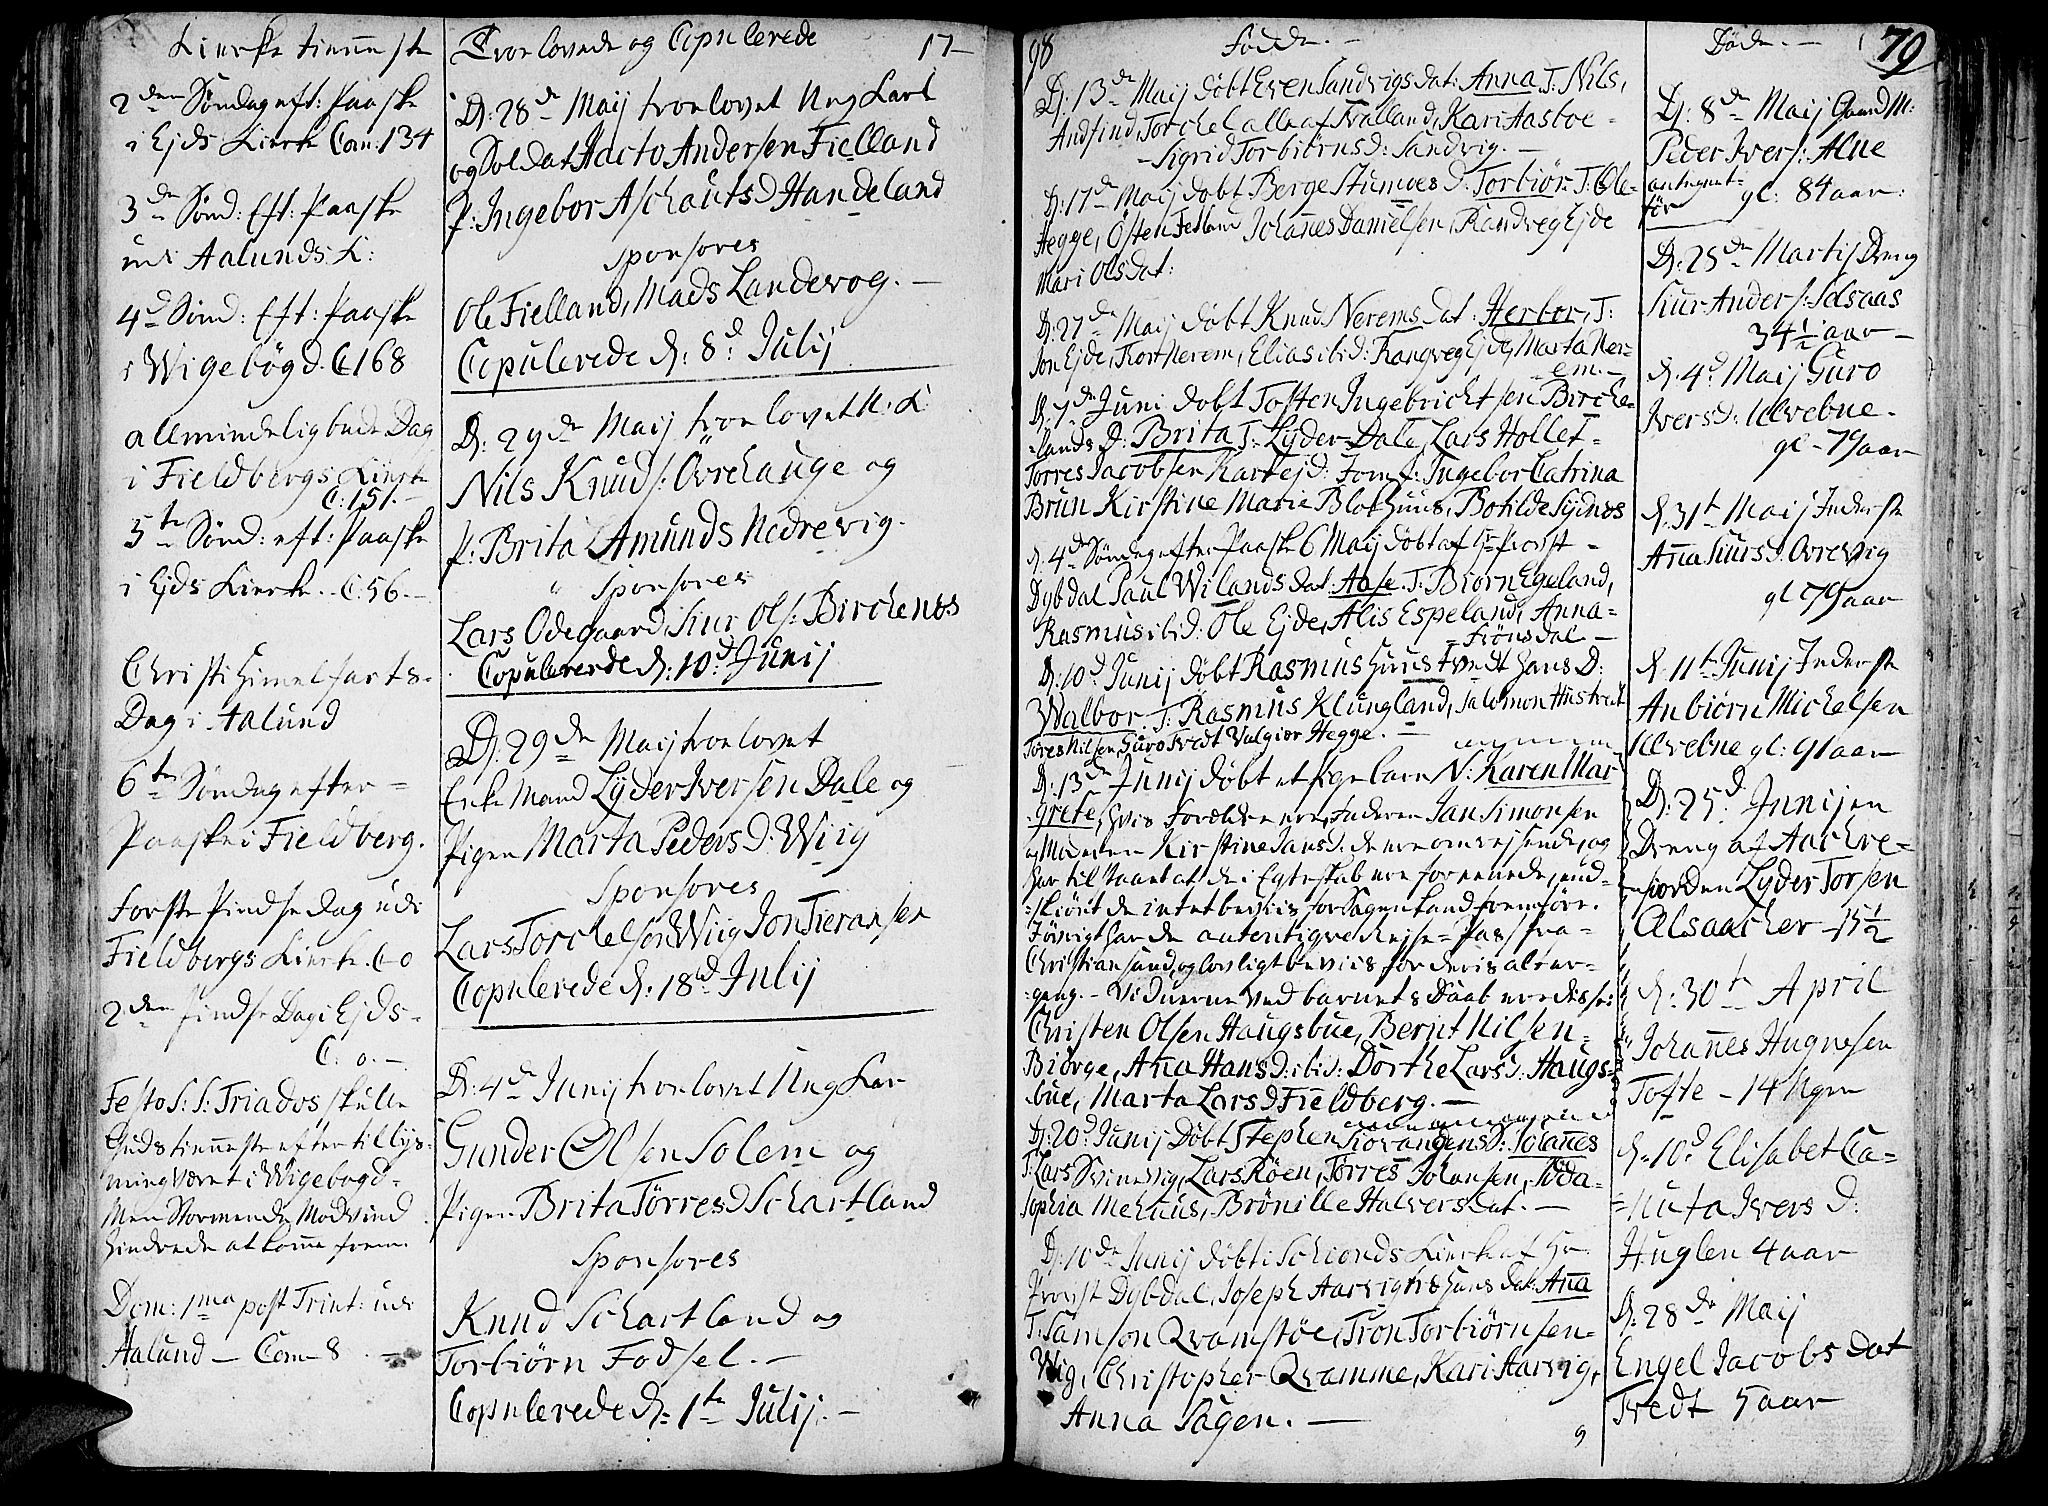 Kierke tienneste
2den Söndag eft: Paaske
i Ejds Kierke Com: 134
3de Sönd: Eft: Paaske
udi Aalunds K:
4d Sönd: Eft: Paaske
i Wigebögd. C 168
allmindelig bede Dag
i Fieldbergs Kierke
C: 151.-
5te Sönd: eft: Paaske
i Ejds Kierke.. C: 56.-
Christi Himelfarts-
Dag i Aalund
6te Söndag efter=
Paaske i Fieldberg.
Forste Pindse dag udi
Fieldbergs Kierke. C-0
2den Pindse Dag i Ejds-
C: 0.-
Festo S: S: Triados skulle
Guds tienneste efter tillys-
ning været i Wigebogd=
Men Stormende Modvind
hindrede at komme frem.
Dom: 1ma post Trint: udi
Aalund - Com- 8. -
Trolovede og Copulerede 17-
D: 28de Maij trolovet Ung Karl
og Soldat Aacto Andersen Fielland
P: Ingebor Aschauts D Handeland
Sponsores
Ole Fielland, Mads Landevog. -
Copulerede d: 8d Julij
D: 29de Maij trolovet U: K:
Nils Knuds: Ovrehauge og
P: Brita Amunds Nedrevig.
Sponsores
Lars Odegaard, Siur Ols: Birchenes
Copulerede d: 10d Junij
D: 29de Maij trolovet
Enke Mand Lyder Iversen Dale og
Pigen Marta Peders D: Wiig
Sponsores
Lars Torchelsön Wiig Jon Fieransen
Copulerede d: 18d Julij
D: 4de Junij trolovet Ung Kar
Gunder Olsen Solem og
Pigen Brita Törres D Schartland
Sponsores
Knud Schartland og
Torbiörn Fodsel. -
Copulerede d: 1te Julij. -
98 Födde. -
D: 13de Maij döbt Even Sandvigs dat: Anna T: Nils,
Andfind, Torchel alle af Tralland, Kari Aasboe-
- Sigrid Torbiörns d: Sandvig. -
D: 17de Maij döbt Berge Stumoes D: Torbiör T: Ole-
Hegge, Östen Johanes Danielsen, Randveg Ejde
Mari Ols dat:
D: 27de Maij döbt Knud Nerems dat: Herbor, T:
Jon Ejde, Tkort Nerem, Elias ibid: Rangveg Ejde, Marta Ner-
em. -
D: 7de Juni döbt Tosten Ingebrichtsen Birche-
-lands D: Brita T: Lyder Dale, Lars Hollet-
Torres Jacobsen Ingebor Catrina
Brun Kirstine Marie Blothuus, Botilde Sydnes
d: 4de Söndag efter Paaske 6 Maij döbt af Hr Provst-
Dybdal Paul Wilands dat: Aase T: Biörn Egeland,
Rasmus ibid: Ole Ejde, Alis Espeland, Anna-
= Frönsdal -
D: 10d Junij döbt Rasmus Huus Tvedt hans D:
Walbor T: Rasmus Klungland, Salomon Hustvedt
Tores Nilsen, Guro Tvedt Valgier Hegge. -
D: 13de Junij döbt et Pige barn N: Karen Mar
grete, hvis Forældre ere, Faderen Jan Simonsen
og Moderen Kirstine Jans d: de ere omrejsende, og
har tilstaaet at de i Egteskab ere foreenede, end-
-skiönt de intet beviis for Sagen kand fremföre.
Iövrigt har de autentiqve Rejse-Pas fra-
Christiansund, og lovligt beviis for deris alter-
gang. - Vidnerne ved barnets Daab ere disse:
Christen Olsen Haugsbue, Bernt Nilsen-
Biörge, Ana Hans D: ibid: Dorthe Lars D: Haugs-
bue, Marta Lars D Fieldberg. -
D: 20d Junij Döbt Stephen Siovangens D: Johannes
T: Lars Svinevig, Lars Röen, Törres Johansen, Ida-
Sophia Mehuus, Brönille Halvers dat. -
D: 10de Junij döbt i Schonds Kierke af Hr
Provst Dybdal, Joseph Aarvigh: hans dat: Ana
T: Samson Qvamstöe, Tron Torbiörnsen-
Wig, Christopher Qvamme, Kari Aarvig,
Anna Sagen. -
Döde. - 79
D: 8de Maij Gaard M:
Peder Ivers: Alne
antegnet
för gl: 84 aar:
D: 25de Martij Dreng
Siur Anders: Selsaas
34 1/2 aar -
d: 4d Maij Guro
Ivers D: Ulvebne.
gl - 79 aar
d: 31te Maij Inderste
Ana Siurs D: Ovrevig
gl 79 aar
d: 11te Junij Inderste
Anbiörn Michelsen
Ulvebne gl: 91 aar
D: 25d Junij en
Dreng af Aachre-
-fiorden Lyder Torsen
Alsaacher - 15 1/2
d: 30te April
Johanes Hugnesen
Tofte - 14 Uger
d: 10d Elisabet Ca-
=nuta Ivers D:
Huglen 4 aar
D: 28de Maij
Engel Jacobs dat
Tvedt 5 aar